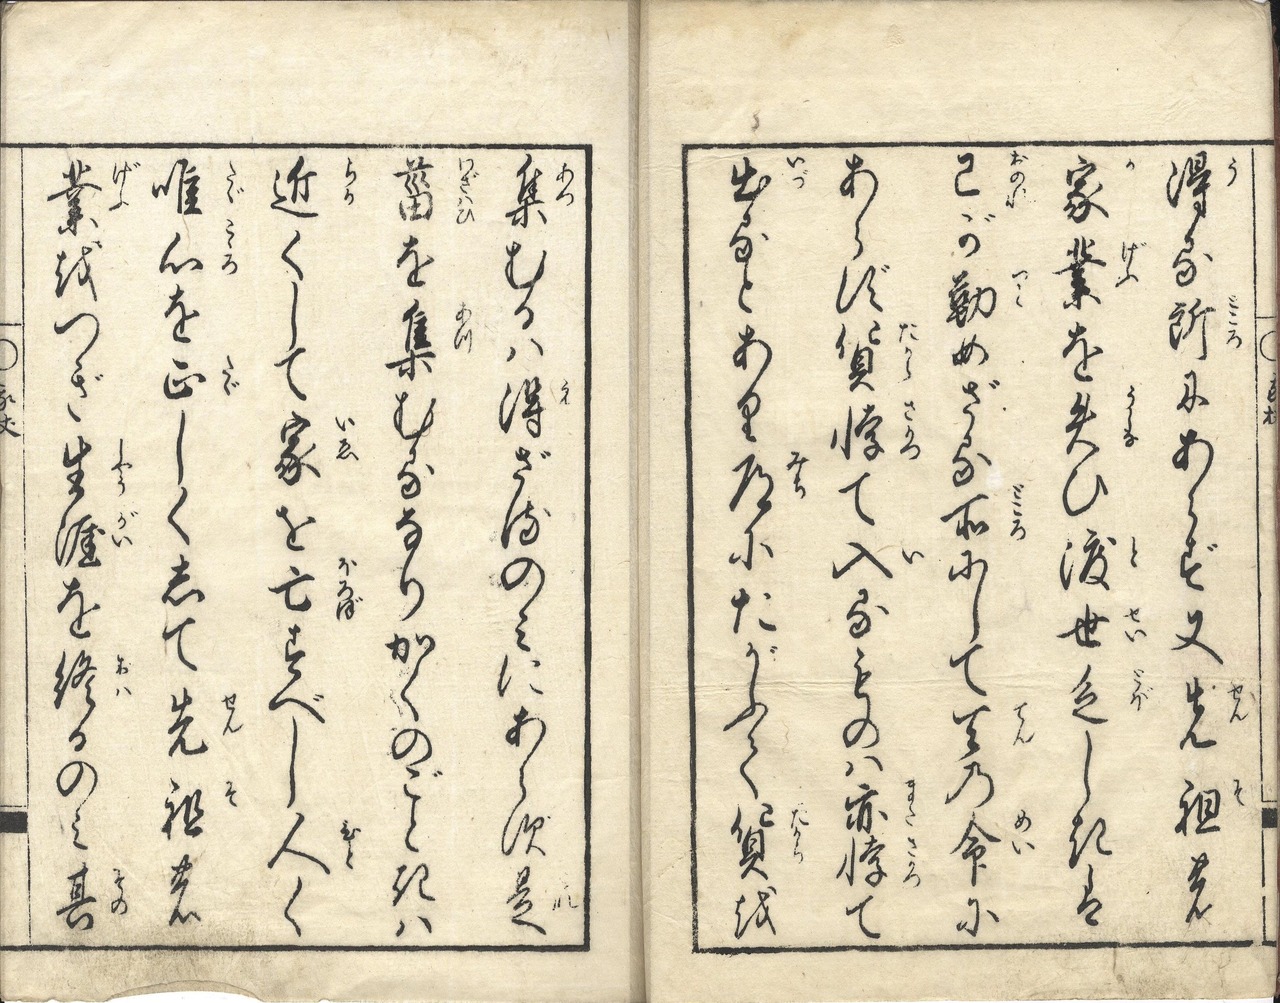 得る所にあらず又先祖の
家業を失ひ渡世乏しきは
己が勤めざる所にして天の命に
あらず貨悖て入るものハ亦悖て
出るとあり道にたがふて貨を
集むるハ得ざるのみにあらず是
菑を集むるなりかくのごときハ
近くして家を亡すべし人〻
唯心を正しくして先祖の
業をつぎ生涯を終るのミ其